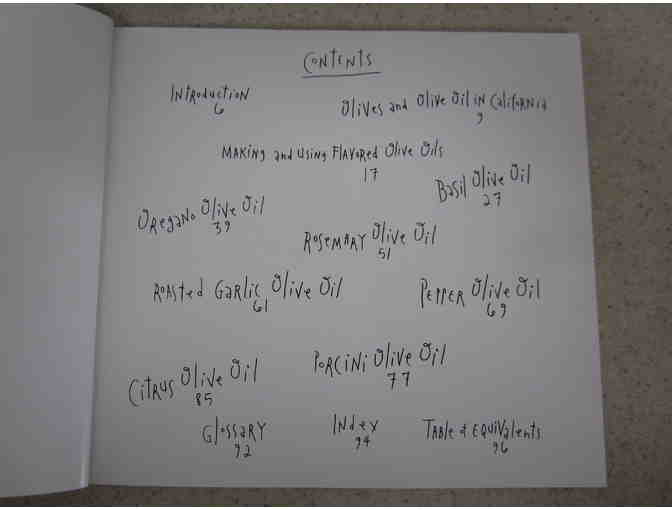 CONTENTS
INTRODUCTION
6
Olives and Olive Oil IN California
9
MAKING and USING FLAVORED Olive Oils
17
Basil Olive Oil
27
OREGANO Olive Oil
39
ROSEMARY Olive Oil
51
ROASTED GARLIC Olive Oil
61
PEPPER Olive Oil
69
CITRUS Olive Oil
85
PORCINI Olive Oil
77
GLOSSARY
92
INdex
94
TABLE of EQUIVAlents
96